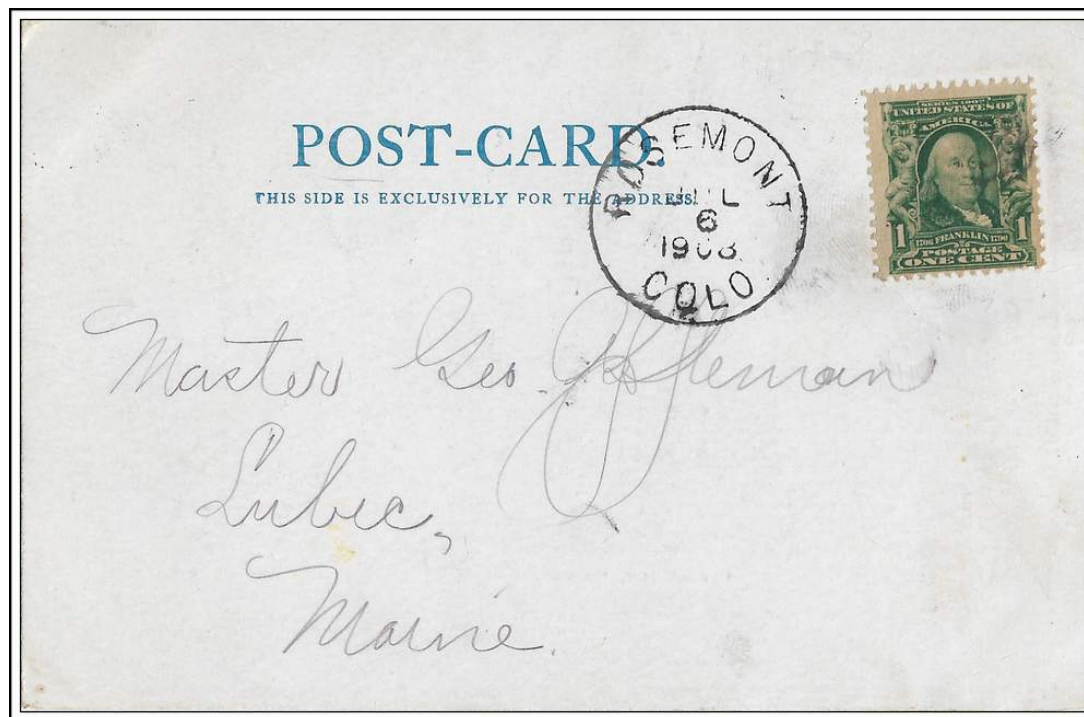 POST-CARD.
THIS SIDE IS EXCLUSIVELY FOR THE ADDRESS.
ROSEMONT
JUL
6
1908
COLO
SERIES 1902
UNITED STATES OF
AMERICA
1 1706 FRANKLIN 1790 1
POSTAGE
ONE CENT
Master Geo.
Lubec,
Maine.